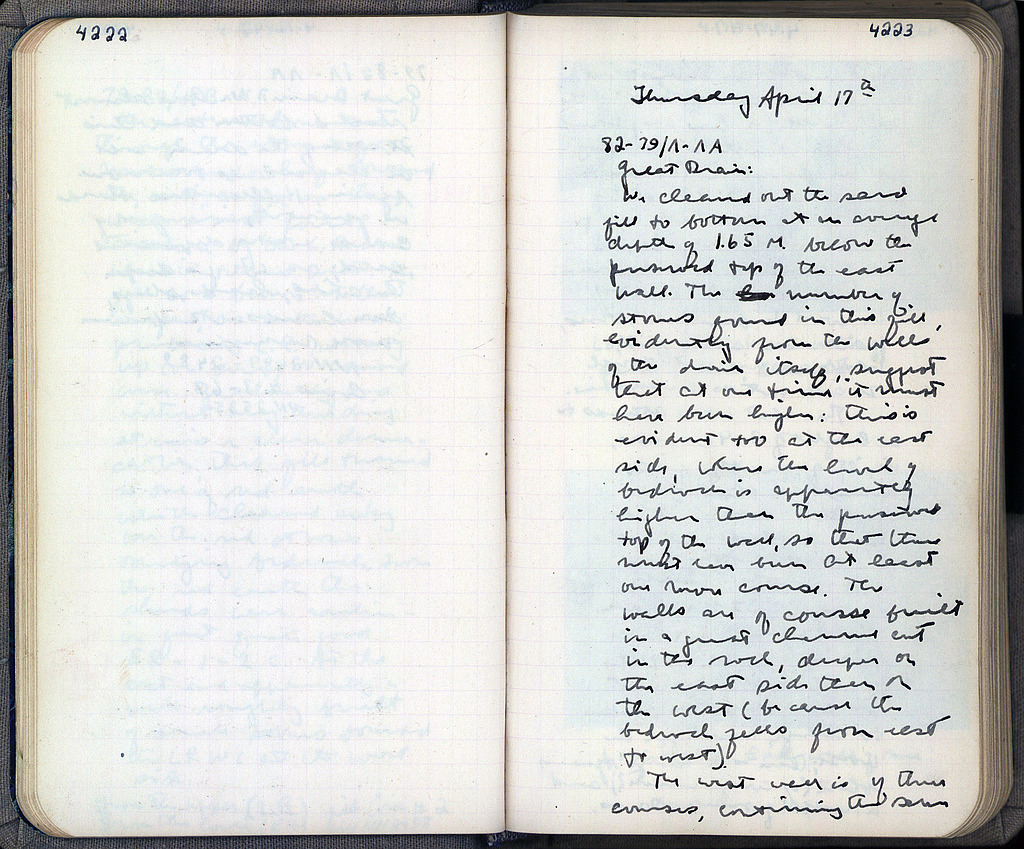 4222
4223
Thursday April 17th
82-79/Λ-ΛΑ
Great Drain:
We cleaned out the sand
fill to bottom at an average
depth of 1.65 M. below the
preserved top of the east
wall. The number of
stones found in this fill,
evidently from the walls
of the drain itself, suggest
that at one time it must
have been higher: this is
evident too at the east
side, where the level of
bedrock is apparently
higher than the preserved
top of the wall, so that there
must have been at least
one more course. The
walls are of course built
in a great channel cut
in the rock, deeper on
the east side than on
the west (because the
bedrock falls from east
to west).
The west wall is of three
courses, continuing the same